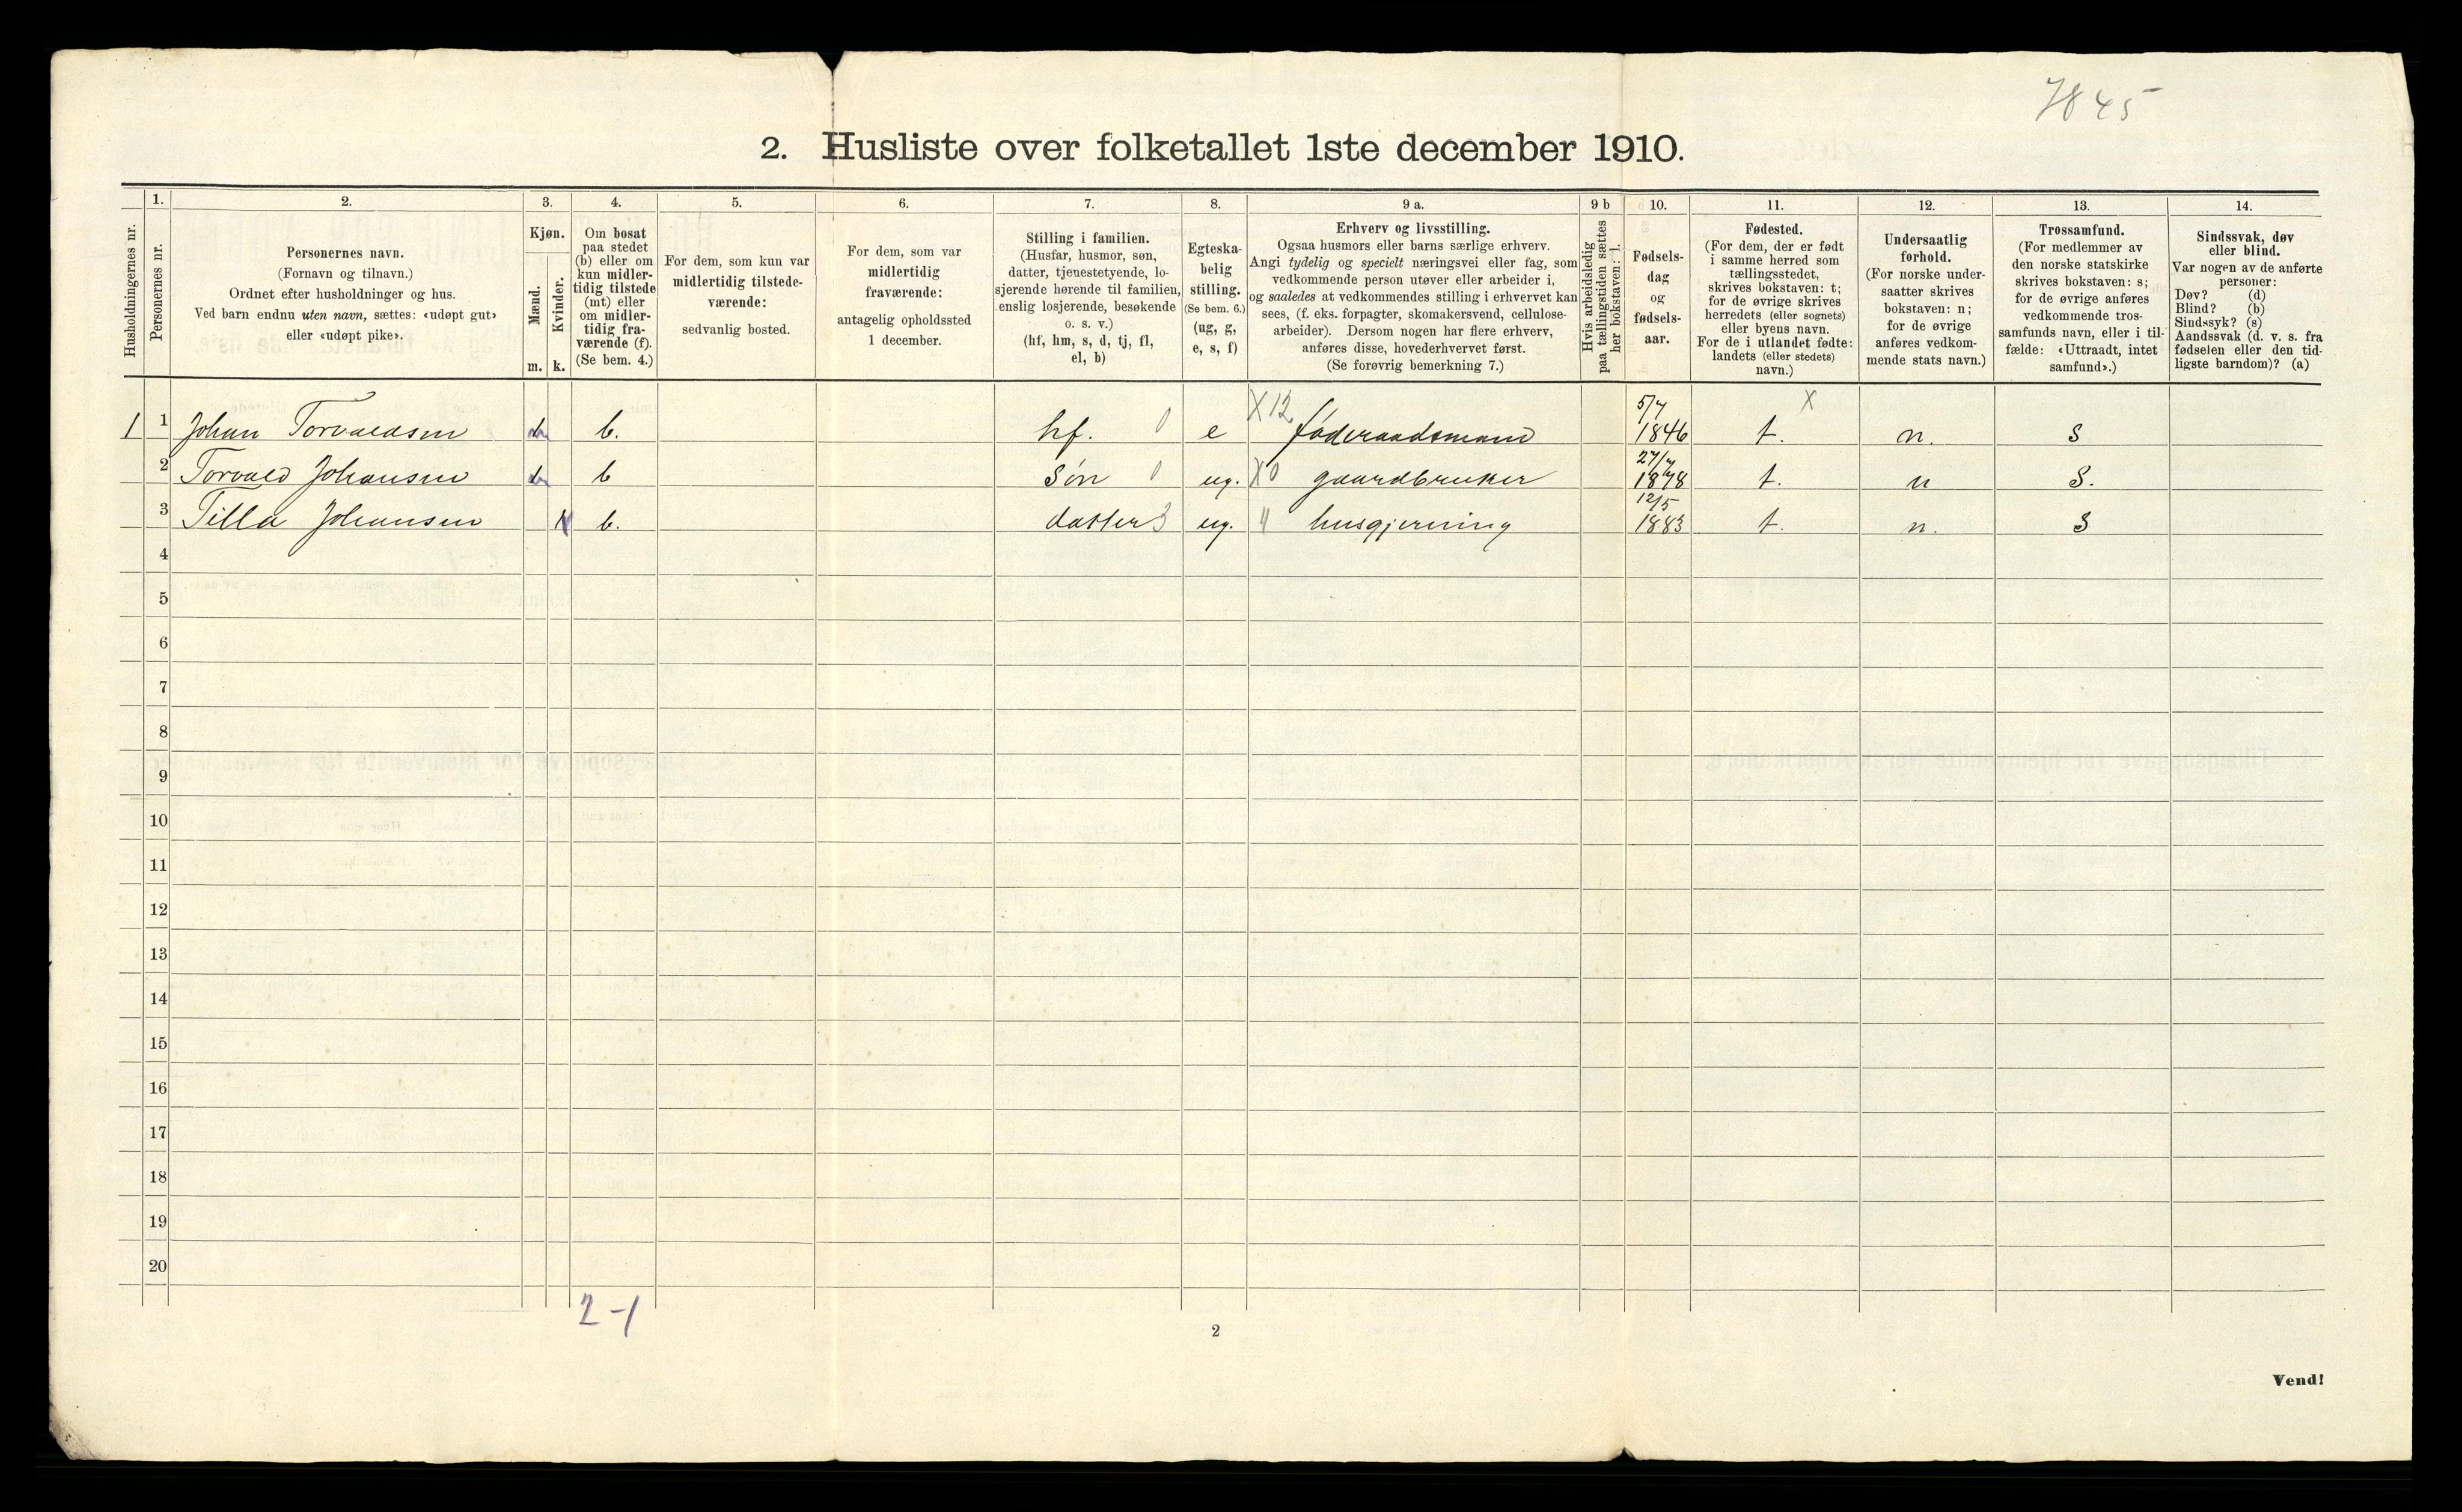 7845
2. Husliste over folketallet 1ste december 1910.
Husholdningernes nr.
1.
Personernes nr.
2.
Personernes navn.
(Fornavn og tilnavn.)
Ordnet efter husholdninger og hus.
Ved barn endnu uten navn, sættes: «udøpt gut»
eller «udøpt pike».
3.
Kjøn.
Mænd.
m.
Kvinder.
k.
4.
Om bosat
paa stedet
(b) eller om
kun midler-
tidig tilstede
(mt) eller
om midler-
tidig fra-
værende (f).
(Se bem. 4.)
5.
For dem, som kun var
midlertidig tilstede-
værende:
sedvanlig bosted.
6.
For dem, som var
midlertidig
fraværende:
antagelig opholdssted
1 december.
7.
Stilling i familien.
(Husfar, husmor, søn,
datter, tjenestetyende, lo-
sjerende hørende til familien,
enslig losjerende, besøkende
o. s. v.)
(hf, hm, s, d, tj, fl,
el, b)
8.
Egteska-
belig
stilling.
(Se bem. 6.)
(ug, g,
e, s, f)
9 a.
Erhverv og livsstilling.
Ogsaa husmors eller barns særlige erhverv.
Angi tydelig og specielt næringsvei eller fag, som
vedkommende person utøver eller arbeider i,
og saaledes at vedkommendes stilling i erhvervet kan
sees, (f. eks. forpagter, skomakersvend, cellulose-
arbeider). Dersom nogen har flere erhverv,
anføres disse, hovederhvervet først.
(Se forøvrig bemerkning 7.)
9 b
Hvis arbeidsledig
paa tællingstiden sættes
her bokstaven: l.
10.
Fødsels-
dag
og
fødsels-
aar.
11.
Fødested.
(For dem, der er født
i samme herred som
tællingsstedet,
skrives bokstaven: t;
for de øvrige skrives
herredets (eller sognets)
eller byens navn.
For de i utlandet fødte:
landets (eller stedets)
navn.)
12.
Undersaatlig
forhold.
(For norske under-
saatter skrives
bokstaven: n;
for de øvrige
anføres vedkom-
mende stats navn.)
13.
Trossamfund.
(For medlemmer av
den norske statskirke
skrives bokstaven: s;
for de øvrige anføres
vedkommende tros-
samfunds navn, eller i til-
fælde: «Uttraadt, intet
samfund».)
14.
Sindssvak, døv
eller blind.
Var nogen av de anførte
personer:
Døv? (d)
Blind? (b)
Sindssyk? (s)
Aandssvak (d. v. s. fra
fødselen eller den tid-
ligste barndom)? (a)
1 1 Johan Torvaldsen b. hf. 0 e X12 føderaadsmand 5/7 1846 X t. n. S
2 Torvald Johansen b Søn 0 ug. X0 gaardbruker 27/7 1878 t. n S.
3 Tilla Johansen k b. datter 3 ug. " husgjerning 12/5 1883 t. n. S
4
5
6
7
8
9
10
11
12
13
14
15
16
17
18
19
20
2-1
2
Vend!